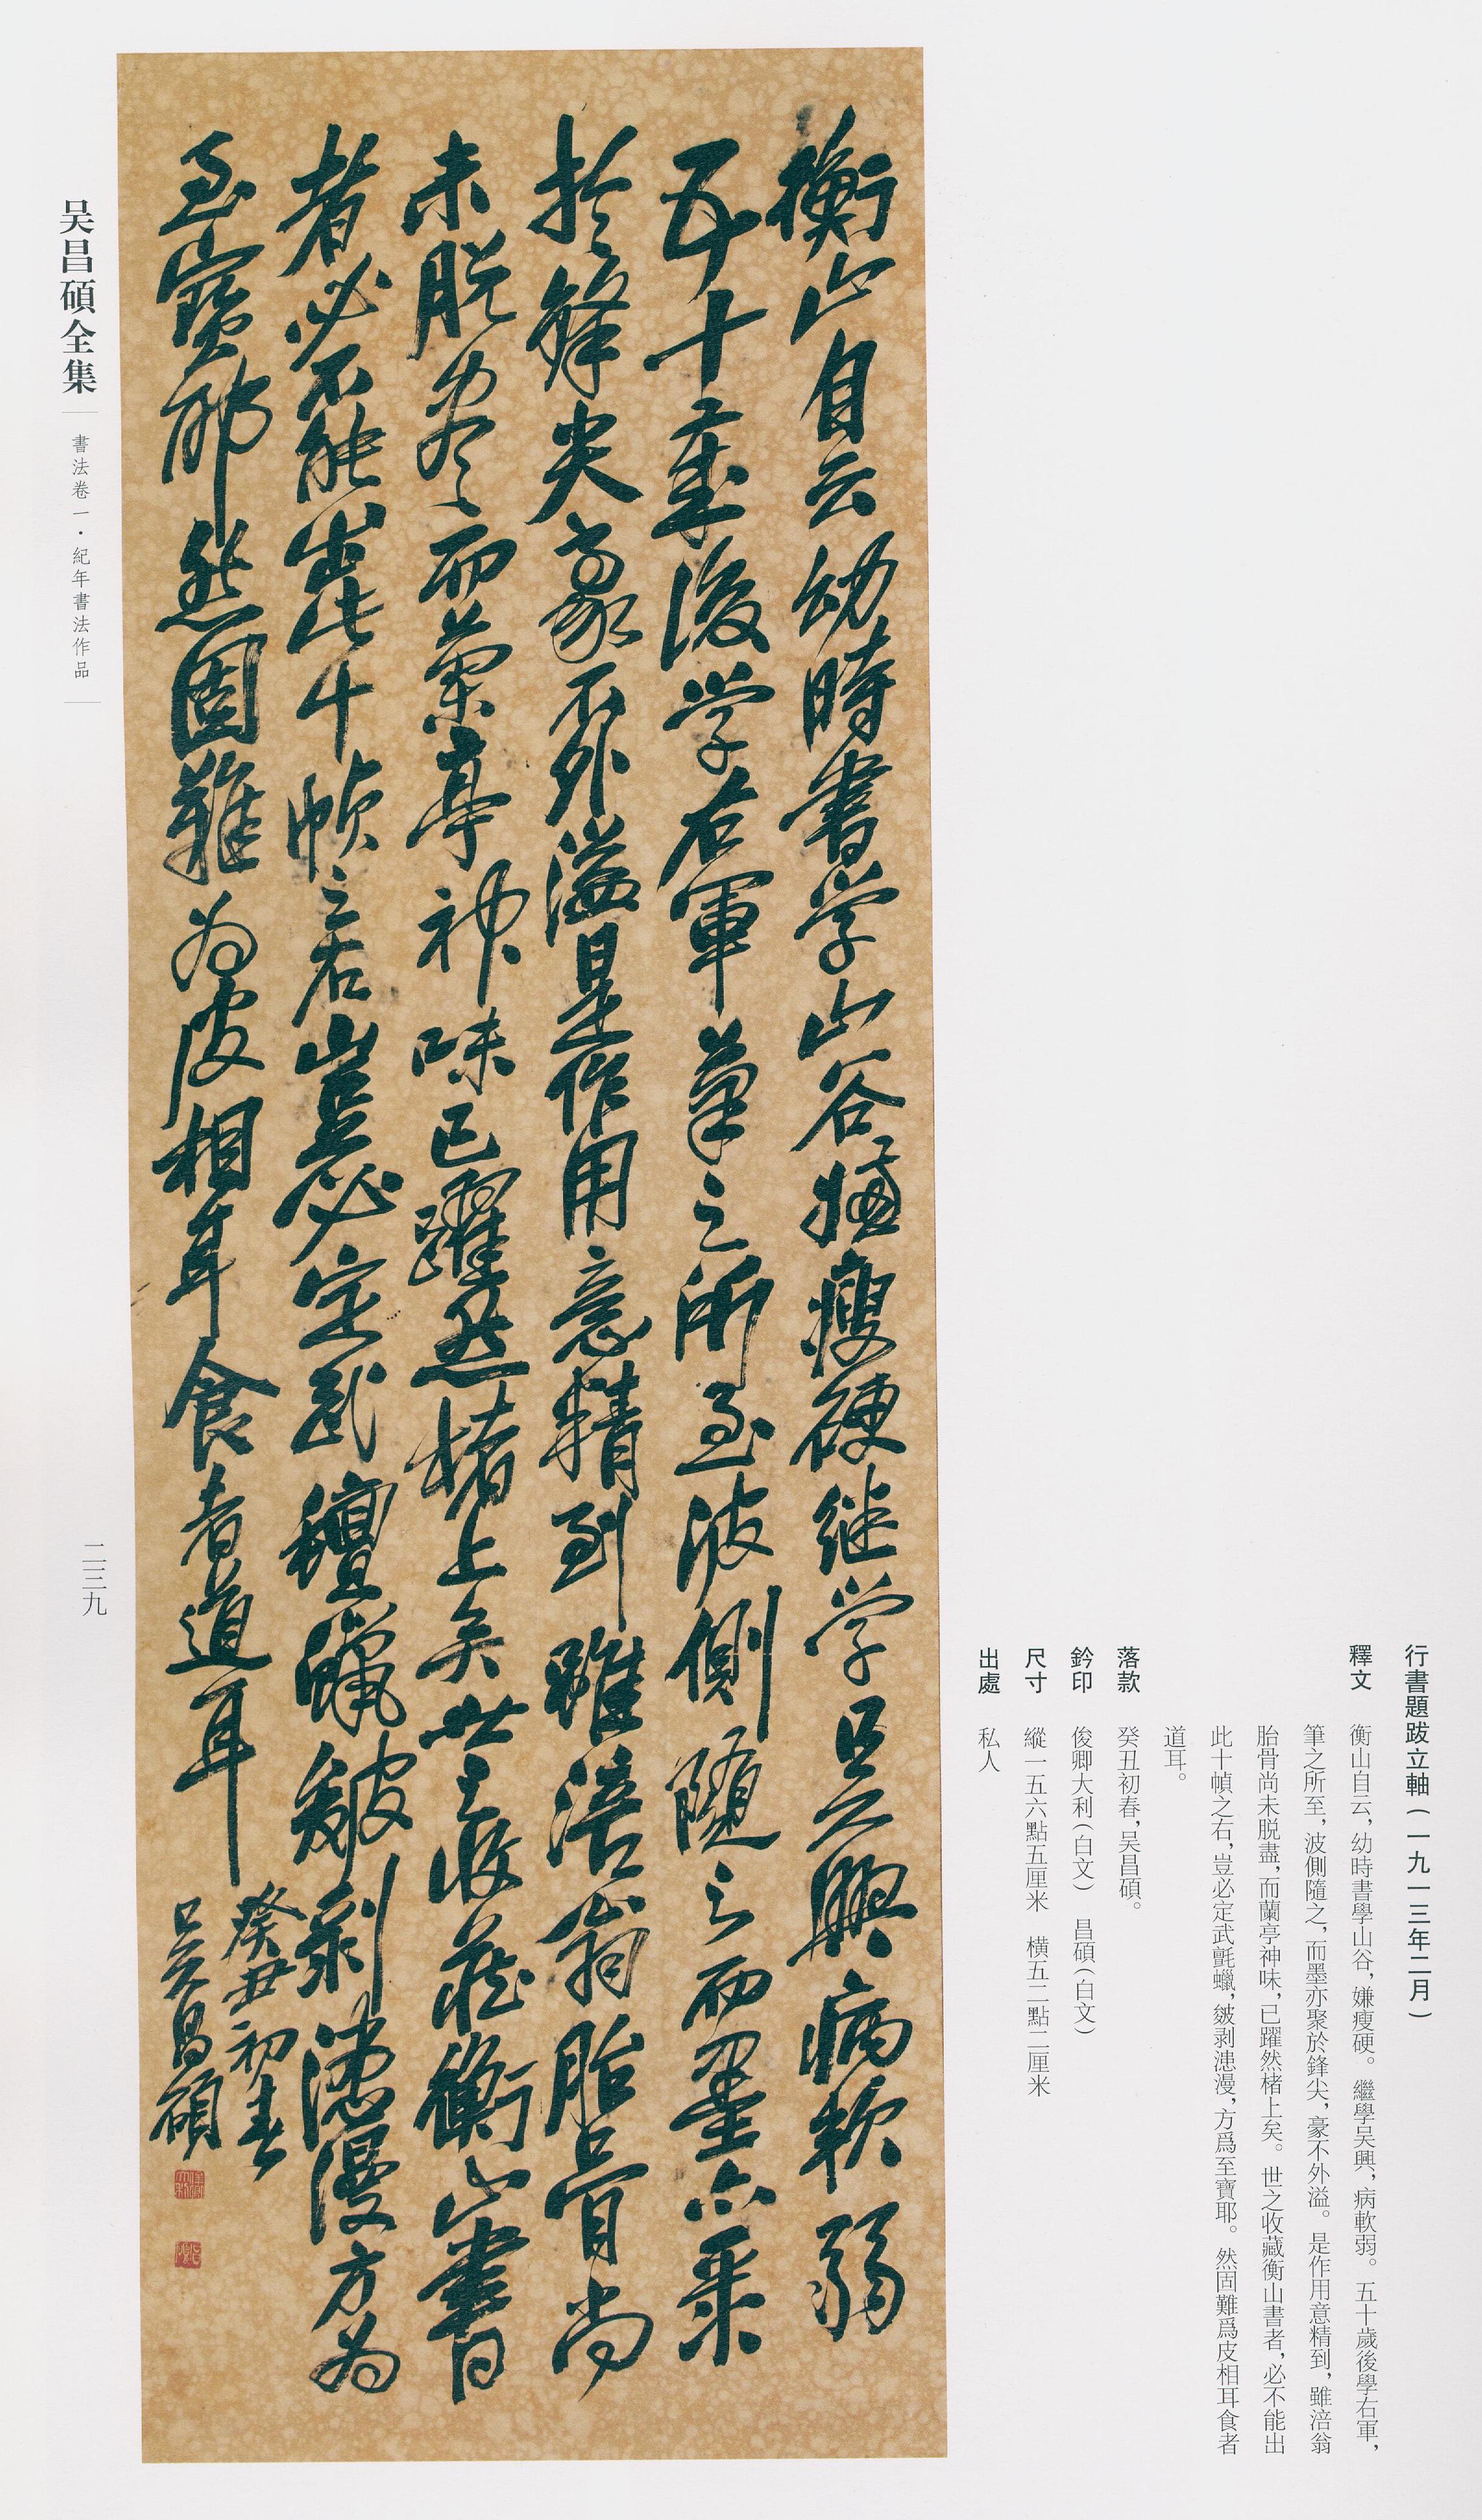 行書題跋立軸（一九一三年二月）
釋文　衡山自云，幼時書學山谷，嫌瘦硬。繼學吴興，病軟弱。五十歲後學右軍，
筆之所至，波側隨之，而墨亦聚於鋒尖，豪不外溢。是作用意精到，雖涪翁
胎骨尚未脱盡，而蘭亭神味，已躍然楮上矣。世之收藏衡山書者，必不能出
此十幀之右，豈必定武氈蠟，皴剥漶漫，方爲至寶耶。然固難爲皮相耳食者
道耳。
落款　癸丑初春，吴昌碩。
鈐印　俊卿大利（白文）　昌碩（白文）
尺寸　縱一五六點五厘米　橫五二點二厘米
出處　私人
衡山自云幼時書学山谷嫌瘦硬继学吴興病軟弱
五十歲後学右軍筆之所至波側隨之而墨亦聚
於鋒尖豪不外溢是作用意精到雖涪翁胎骨尚
未脱盡而蘭亭神味已躍然楮上矣世之收藏衡山書
者必不能出此十幀之右豈必定武氊蠟皴剥漶漫方为
至寶耶然固難为皮相耳食者道耳
癸丑初春
吴昌碩
吴昌碩全集
書法卷一・紀年書法作品
二三九